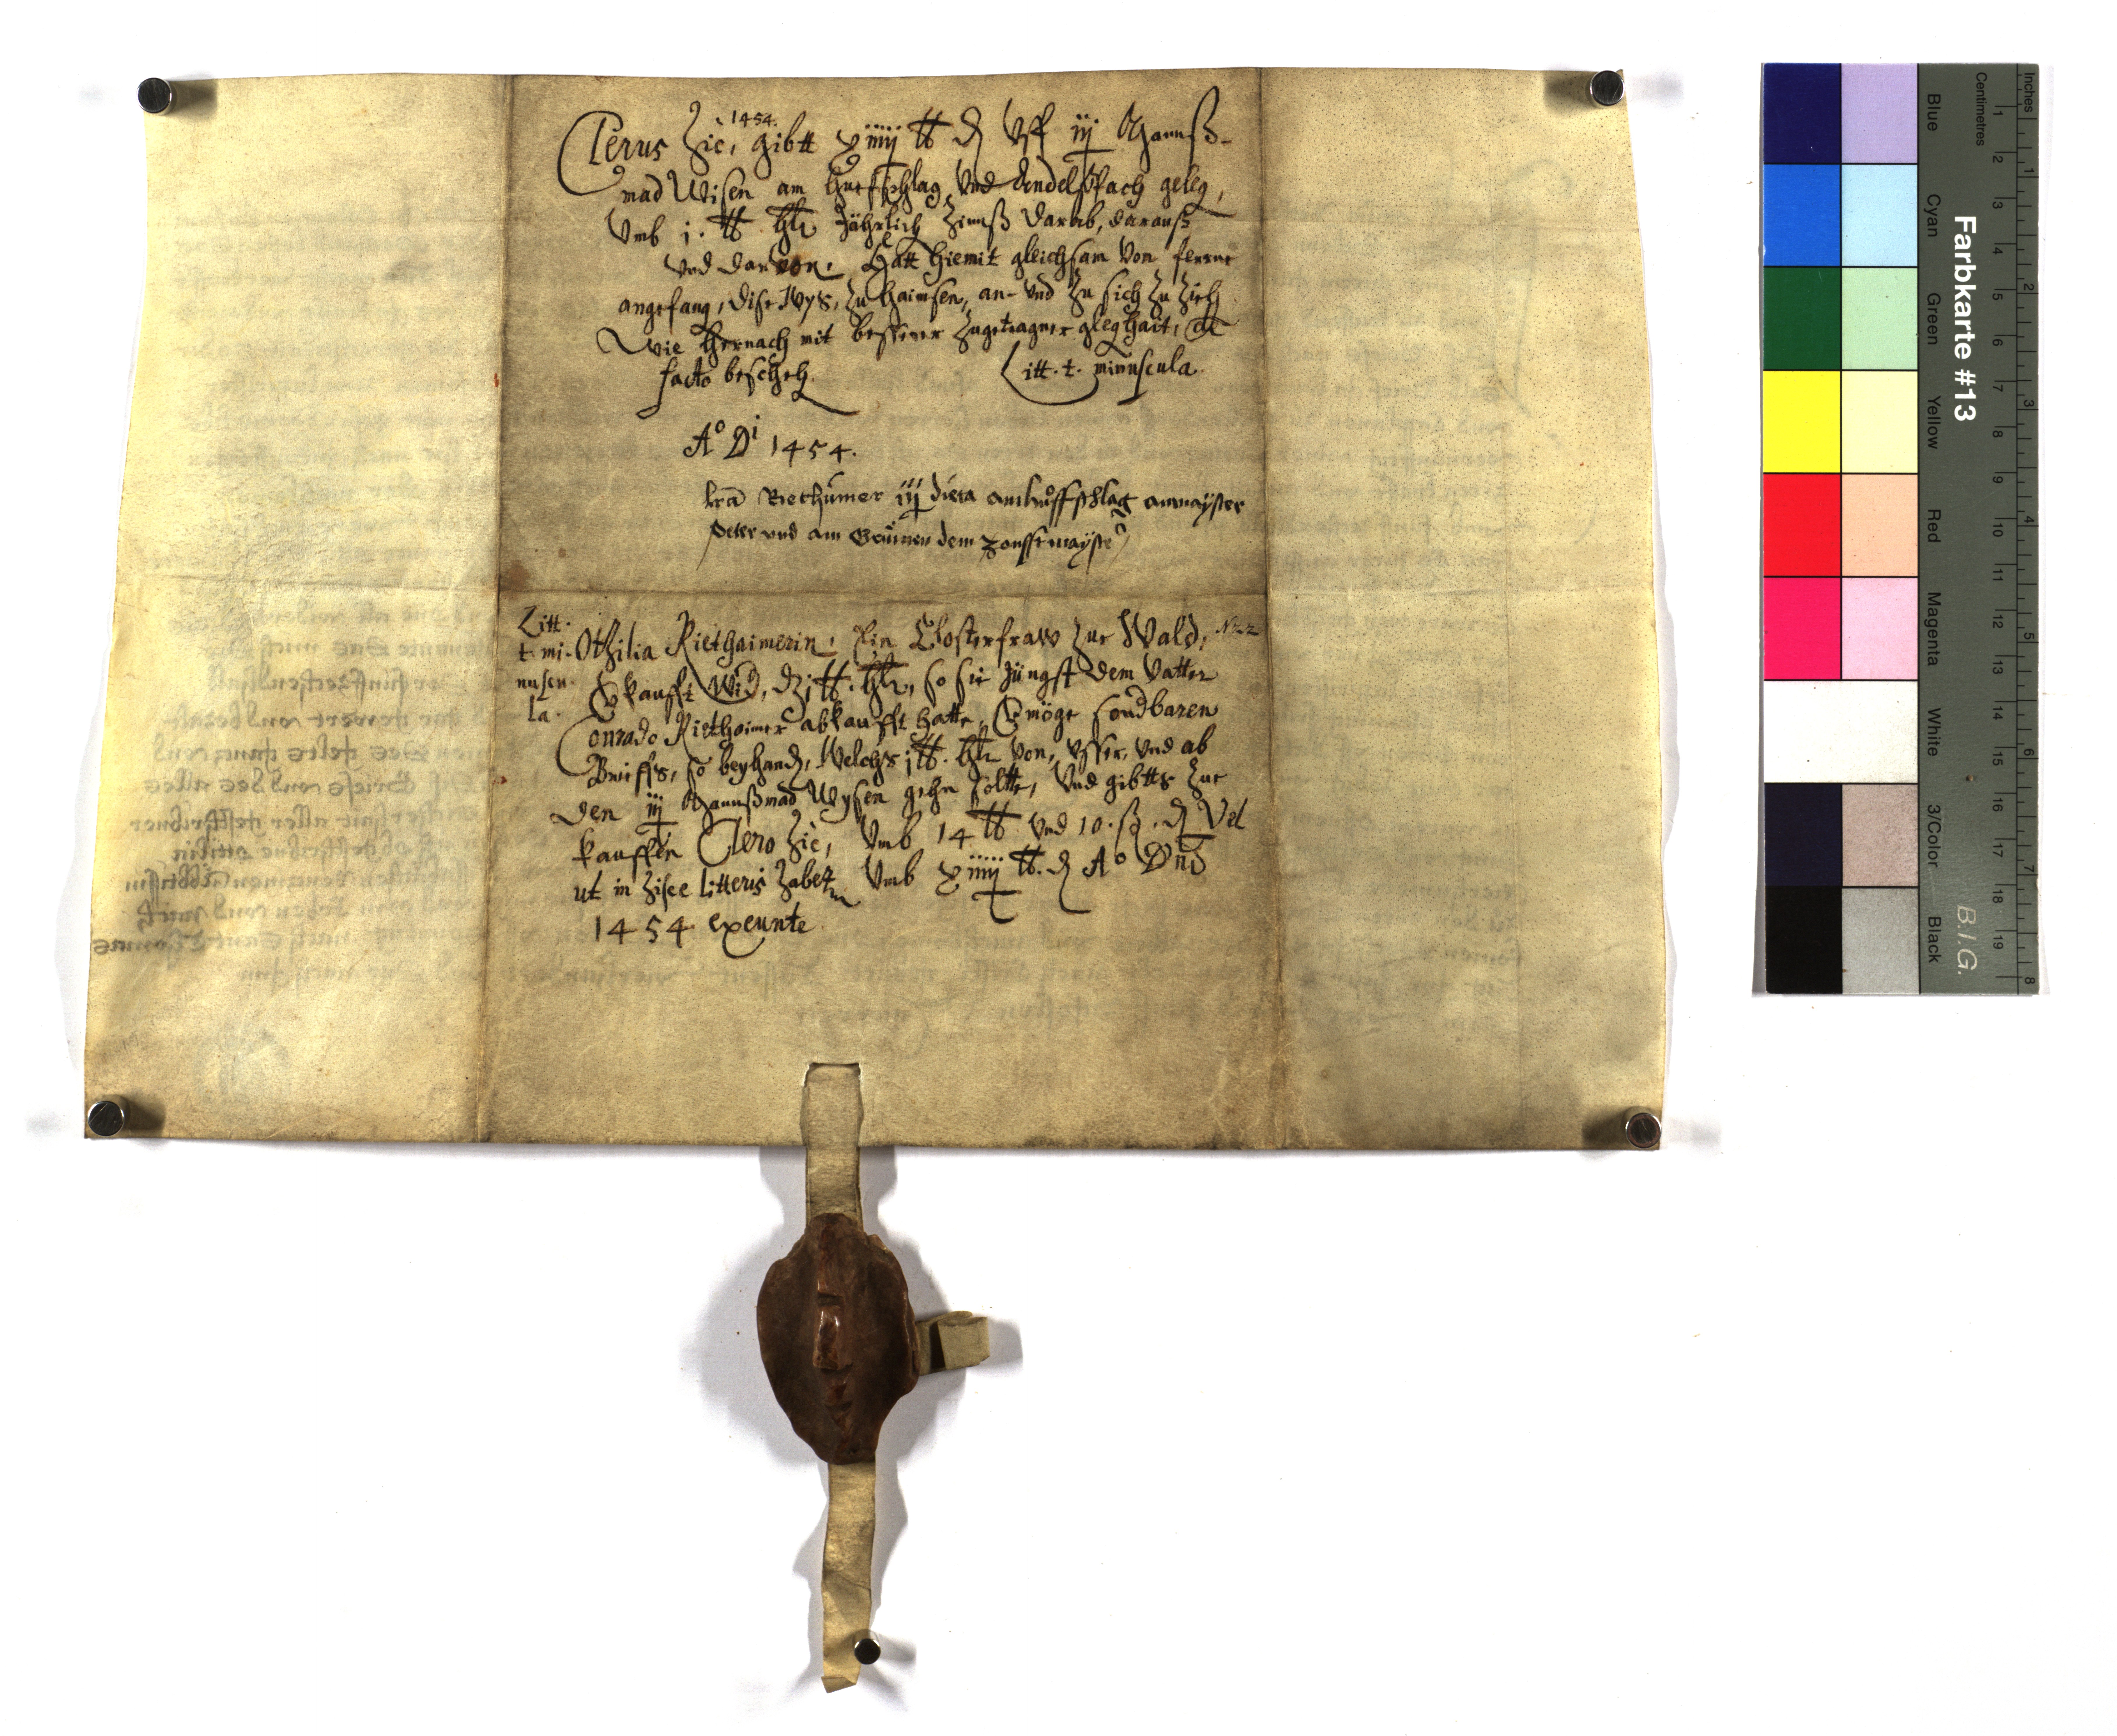 1454.
Clerus hic, gibtt xiiij ℔ ₰ Vff iij Mannß-
mad Wisen am Huefschlag Vnd Andelspach geleg,
Vmb j. ℔ hlr Jährlich Zinnß darab, darauß
Vnd darvon. Hatt hiemit gleichsam Von ferrne
angefang, dise Wys, zu haimsen, an- Vnd zu sich zu zieh
Wie hernach mit besserer zugetragner gleghait, de
facto bescheh. Litt. t. minuscula.
A° Di 1454.
lra Riethaimer iij dieta am huoffschlag
peter vnd am
Litt.
t. mi-
nuscu-
la.
Othilia Riethaimerin, Ein Closterfraw zue Wald, No 2
Vkaufft Wid, dz j ℔. hlr, so sie Jüngst dem Vatter
Conrado Riethaimer abkaufft hatte, Vmöge sondbaren
Brieffs, so beyhand, Welchs j ℔. hlr von, vsser, vnd ab
den iij Mannßmad Wysen gehn soltte, Vnd gibtts zue
kauffen Clero hic, Vmb 14 ℔ Vnd 10. ß. ₰ Vel
ut in hisce litteris habetr Vmb xiiij ℔. ₰ A° Dni
1454 exeunte.
Farbkarte #13
B.I.G.
Blue
Cyan
Green
Yellow
Red
Magenta
White
3/Color
Black
Inches
Centimetres
1 2 3 4 5 6 7 8
1 2 3 4 5 6 7 8 9 10 11 12 13 14 15 16 17 18 19